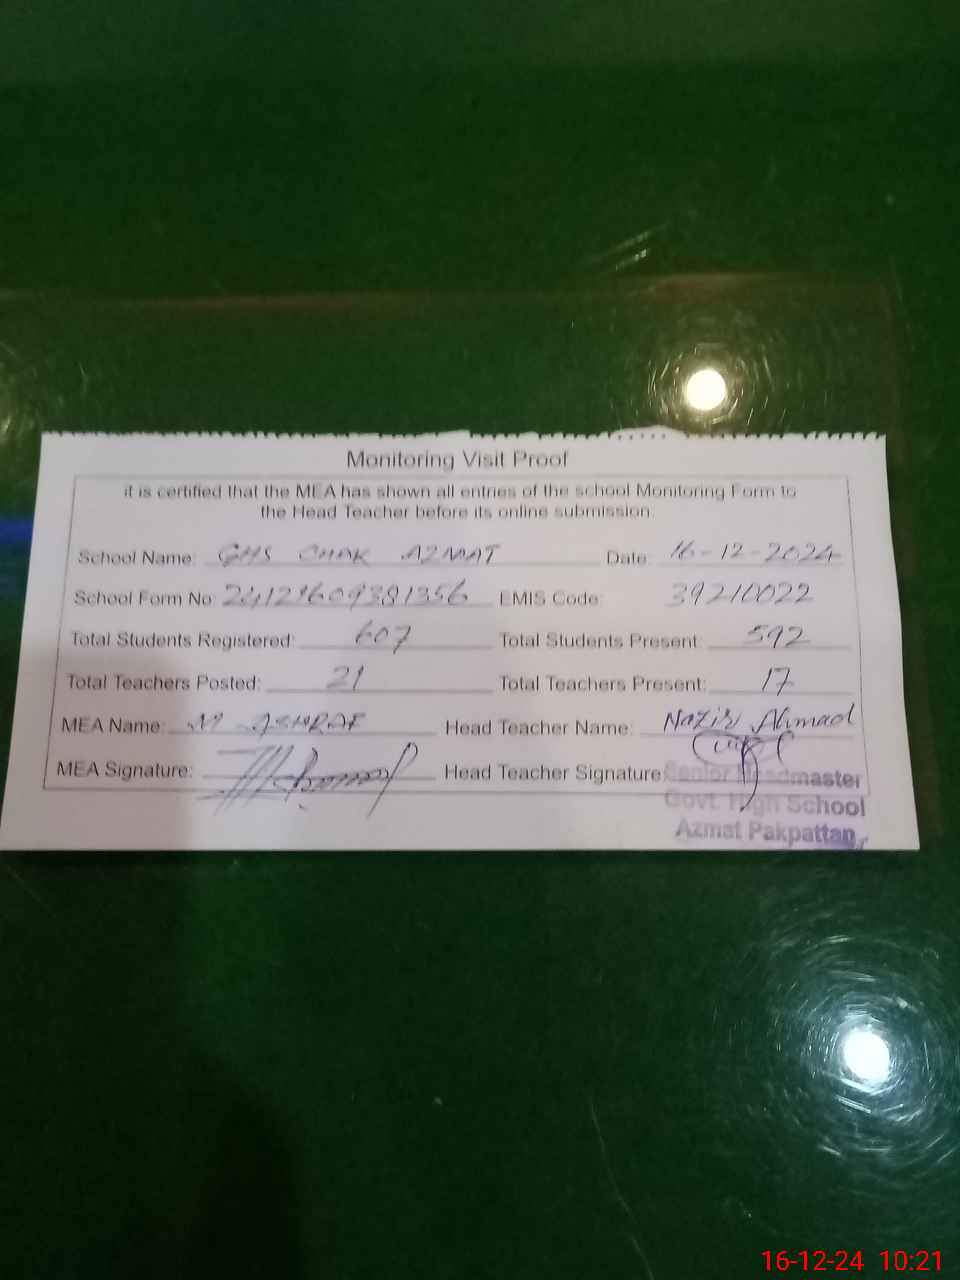 Monitoring Visit Proof
it is certified that the MEA has shown all entries of the school Monitoring Form to
the Head Teacher before its online submission.
School Name: GHS CHAK AZMAT Date: 16-12-2024
School Form No: 24121609381356 EMIS Code: 39210022
Total Students Registered: 607 Total Students Present: 592
Total Teachers Posted: 21 Total Teachers Present: 17
MEA Name: M ASHRAF Head Teacher Name: Nazir Ahmad
MEA Signature: Head Teacher Signature:
Senior Headmaster
Govt. High School
Azmat Pakpattan
16-12-24 10:21